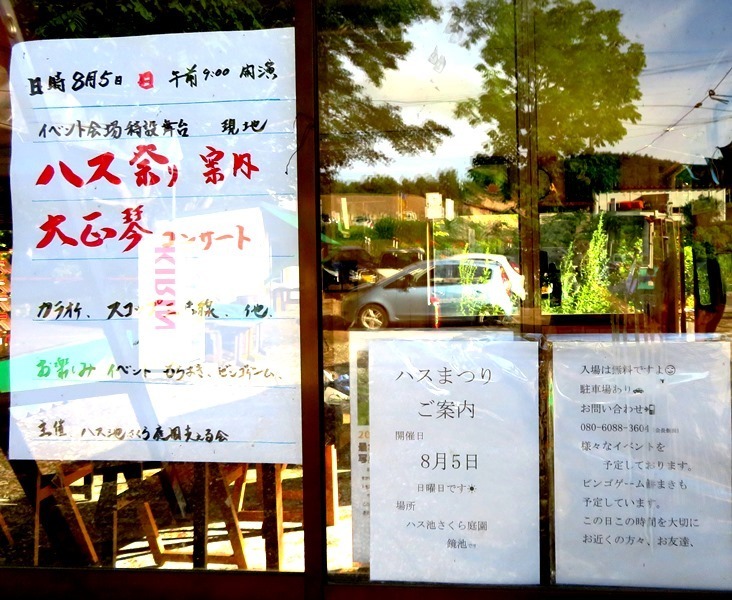 日時 8月5日 日 午前9:00 開演
イベント会場特設舞台 現地
ハス祭り 案内
大正琴コンサート
KIRIN
カラオケ、スコップ三味線、他、
お楽しみ イベント もちまき、ビンゴゲーム、
主催 ハス池さくら庭園支える会
ハスまつり
ご案内
開催日
8月5日
日曜日です☀
場所
ハス池さくら庭園
鏡池です
入場は無料ですよ😊
駐車場あり🚗
お問い合わせ📲
080-6088-3604
様々なイベントを
予定しております。
ビンゴゲーム餅まきも
予定しています。
この日この時間を大切に
お近くの方々、お友達、